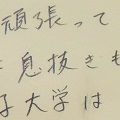 頑張って
息抜きも
子大学は